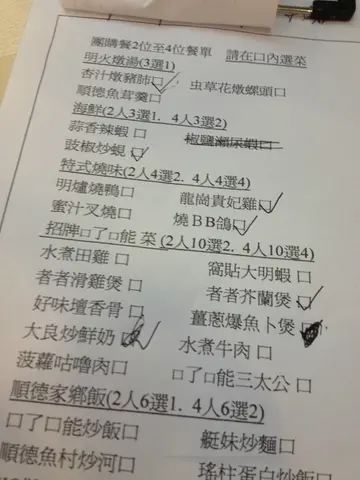 團購餐2位至4位餐單 請在口內選菜
明火燉湯(3選1)
杏汁燉豬肺口 虫草花燉螺頭口
順德魚茸羹口
海鮮(2人3選1. 4人3選2)
蒜香辣蝦口 椒鹽瀨尿蝦口
豉椒炒蜆口
特式燒味(2人4選2. 4人4選4)
明爐燒鴨口 龍崗貴妃雞口
蜜汁叉燒口 燒BB鴿口
招牌口了口能菜(2人10選2. 4人10選4)
水煮田雞口 窩貼大明蝦口
者者滑雞煲口 者者芥蘭煲口
好味壇香骨口 薑蔥爆魚卜煲口
大良炒鮮奶口 水煮牛肉口
菠蘿咕嚕肉口 口了口能三太公口
順德家鄉飯(2人6選1. 4人6選2)
口了口能炒飯口 艇妹炒麵口
順德魚村炒河口 瑤柱蛋白炒飯口